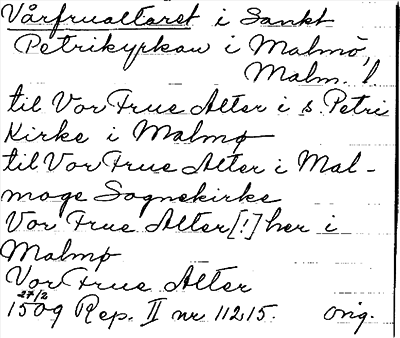 Vårfrualtaret i Sankt
Petrikyrkan i Malmö,
Malm. l.
til Vor Frue Alter i s. Petri
Kirke i Malmø
til Vor Frue Alter i Mal-
møge Sognekirke
Vor Frue Alter [!] her i
Malmø
Vor Frue Alter
27/2
1509 Rep. II nr 11215. orig.